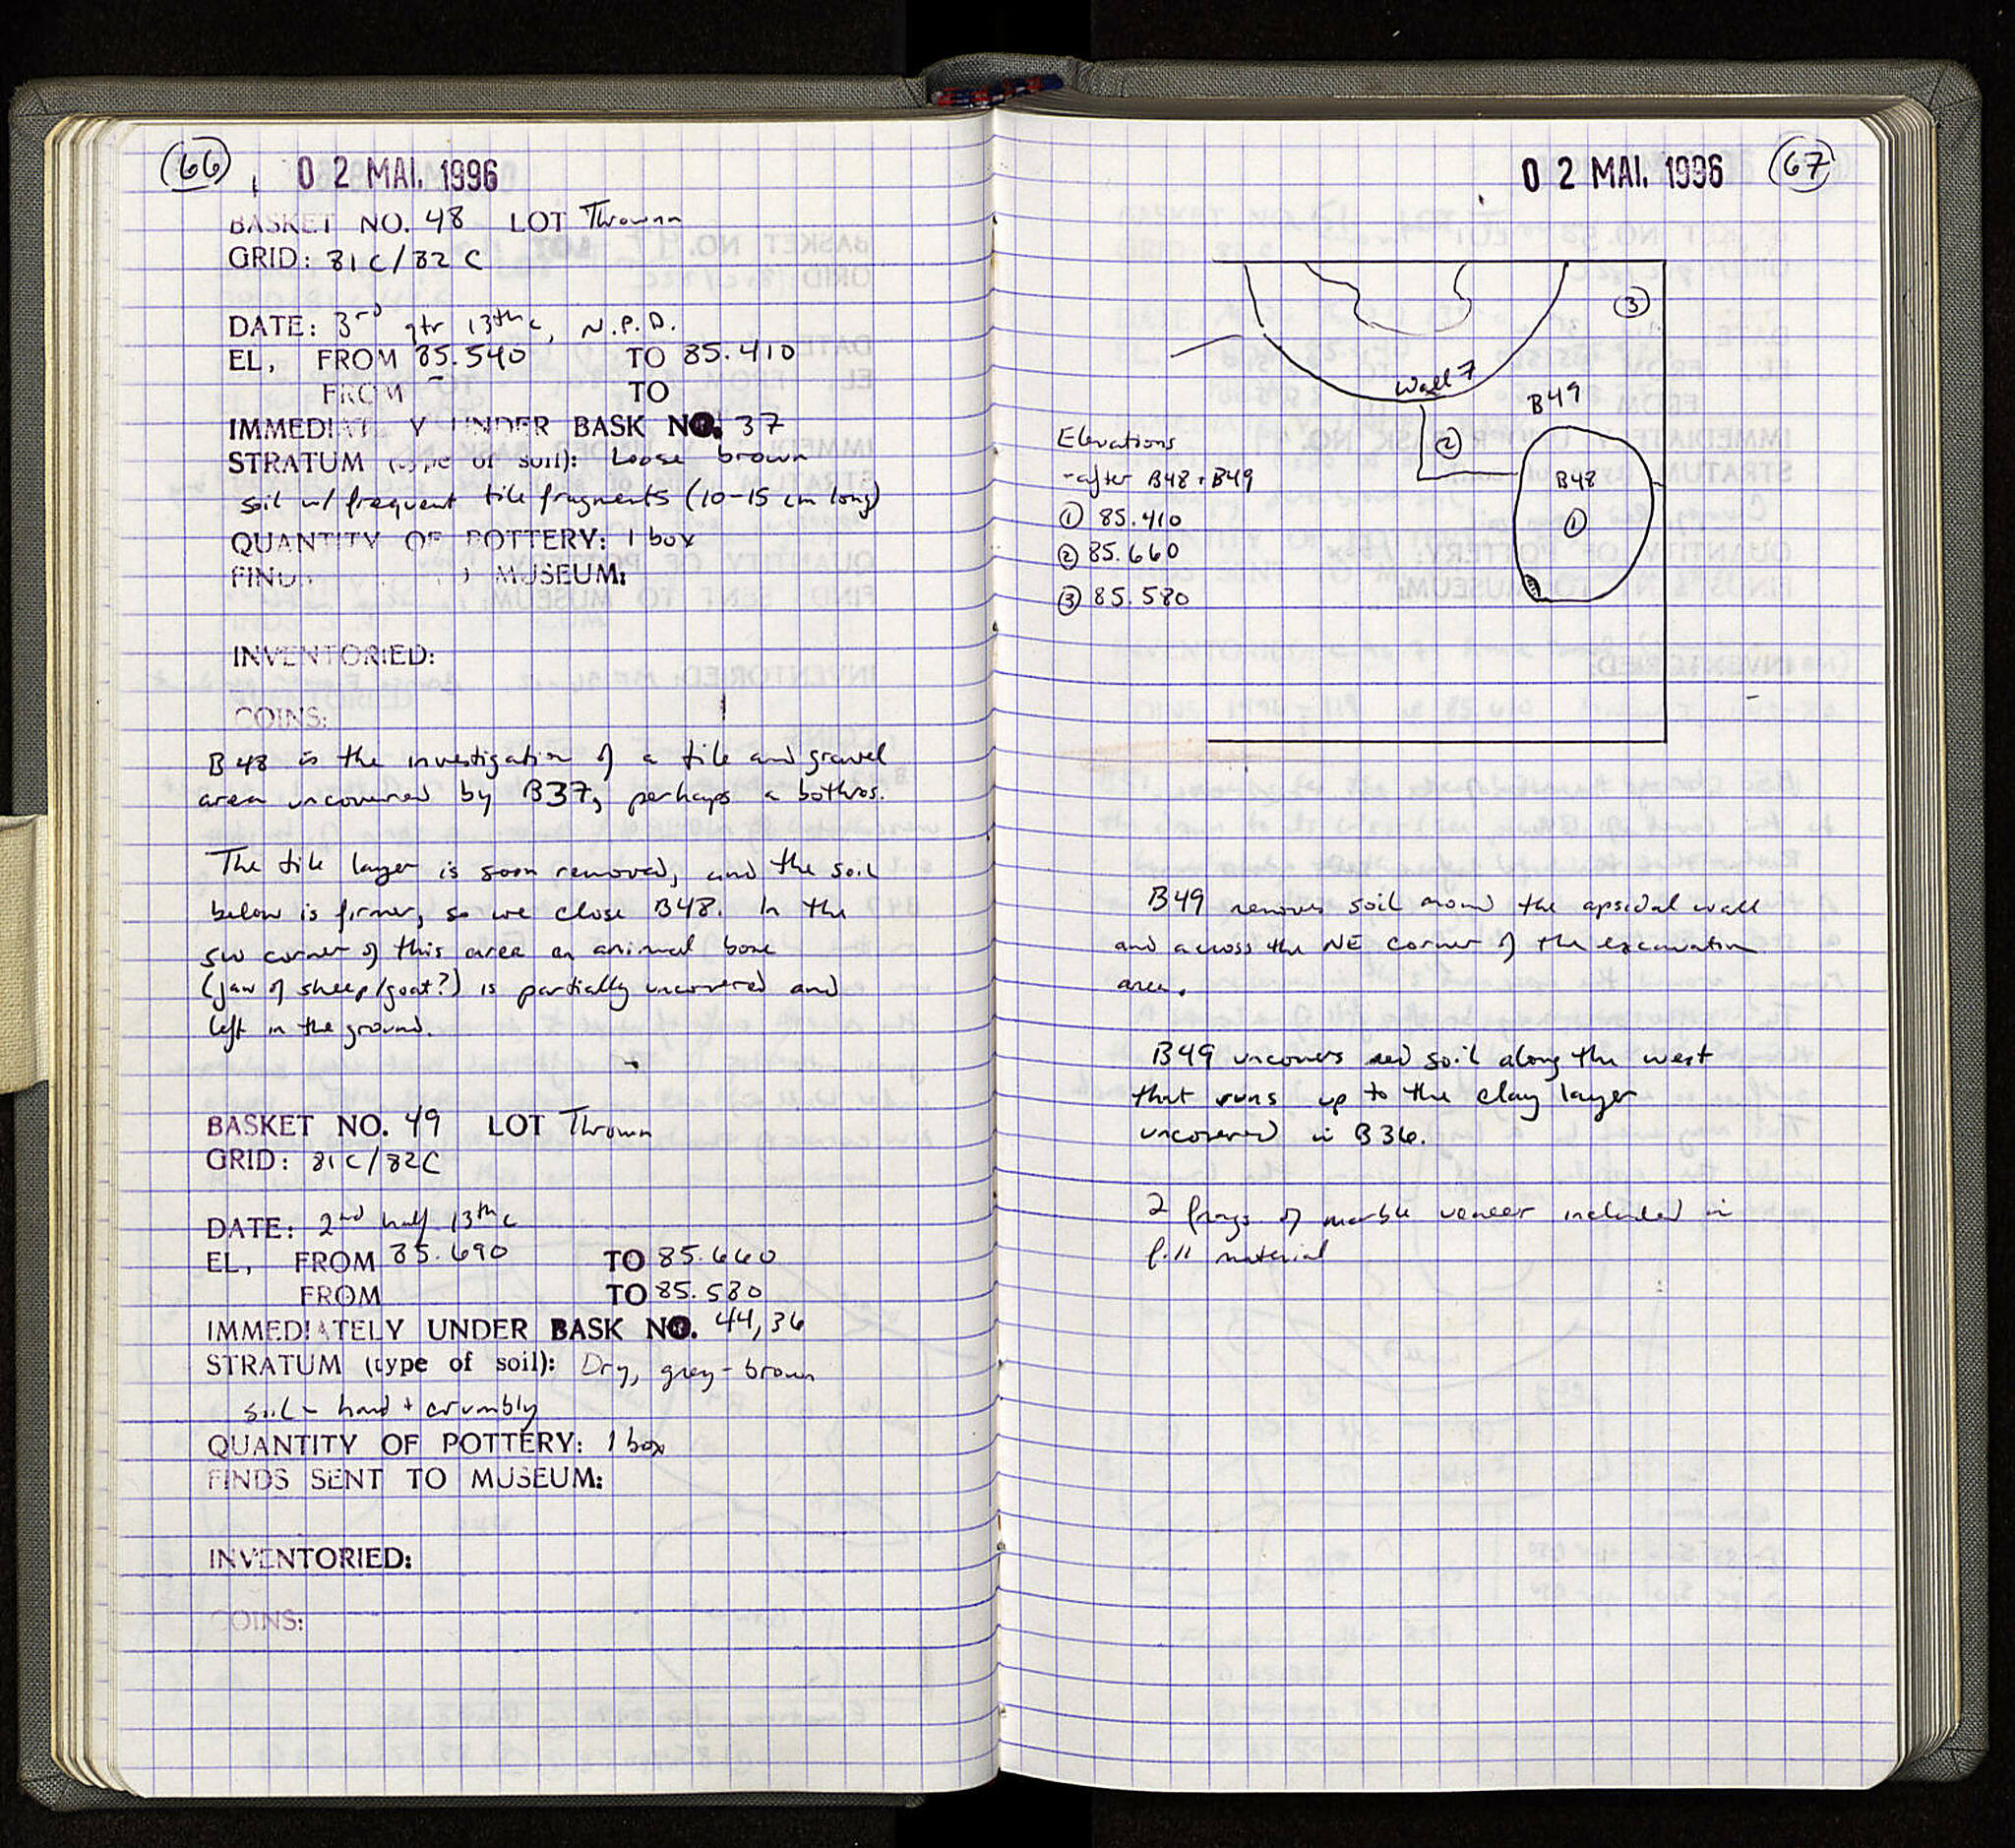 66
02 MAI. 1996
BASKET NO. 48 LOT Thrown
GRID: 81C/82C
DATE: 3rd qtr 13th c, N.P.D.
EL, FROM 85.540 TO 85.410
FROM - TO
IMMEDIATELY UNDER BASK NO. 37
STRATUM (type of soil): Loose brown
soil w/ frequent tile fragments (10-15 cm long)
QUANTITY OF POTTERY: 1 box
FINDS SENT TO MUSEUM:
INVENTORIED:
COINS:
B48 is the investigation of a tile and gravel
area uncovered by B37, perhaps a bothros.
The tile layer is soon removed, and the soil
below is firmer, so we close B48. In the
SW corner of this area an animal bone
(jaw of sheep/goat?) is partially uncovered and
left in the ground.
BASKET NO. 49 LOT Thrown
GRID: 81C/82C
DATE: 2nd half 13th c
EL, FROM 85.690 TO 85.660
FROM TO 85.580
IMMEDIATELY UNDER BASK NO. 44, 36
STRATUM (type of soil): Dry, grey-brown
soil - hard + crumbly
QUANTITY OF POTTERY: 1 box
FINDS SENT TO MUSEUM:
INVENTORIED:
COINS:
02 MAI. 1996
67
3
Wall 7
B49
2
B48
1
Elevations
-after B48 + B49
1 85.410
2 85.660
3 85.580
B49 removes soil around the apsidal wall
and across the NE corner of the excavation
area.
B49 uncovers red soil along the west
that runs up to the clay layer
uncovered in B36.
2 frags of marble veneer included in
fill material